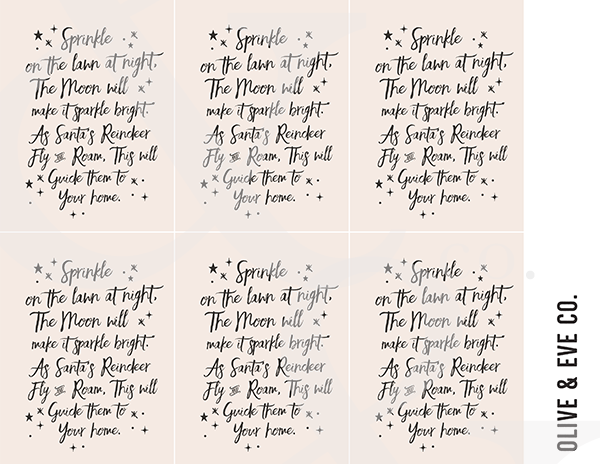 Sprinkle
on the lawn at night,
The Moon will
make it sparkle bright.
As Santa's Reindeer
Fly & Roam, This will
Guide them to
Your home.
Sprinkle
on the lawn at night,
The Moon will
make it sparkle bright.
As Santa's Reindeer
Fly & Roam, This will
Guide them to
Your home.
Sprinkle
on the lawn at night,
The Moon will
make it sparkle bright.
As Santa's Reindeer
Fly & Roam, This will
Guide them to
Your home.
Sprinkle
on the lawn at night,
The Moon will
make it sparkle bright.
As Santa's Reindeer
Fly & Roam, This will
Guide them to
Your home.
Sprinkle
on the lawn at night,
The Moon will
make it sparkle bright.
As Santa's Reindeer
Fly & Roam, This will
Guide them to
Your home.
Sprinkle
on the lawn at night,
The Moon will
make it sparkle bright.
As Santa's Reindeer
Fly & Roam, This will
Guide them to
Your home.
OLIVE & EVE CO.